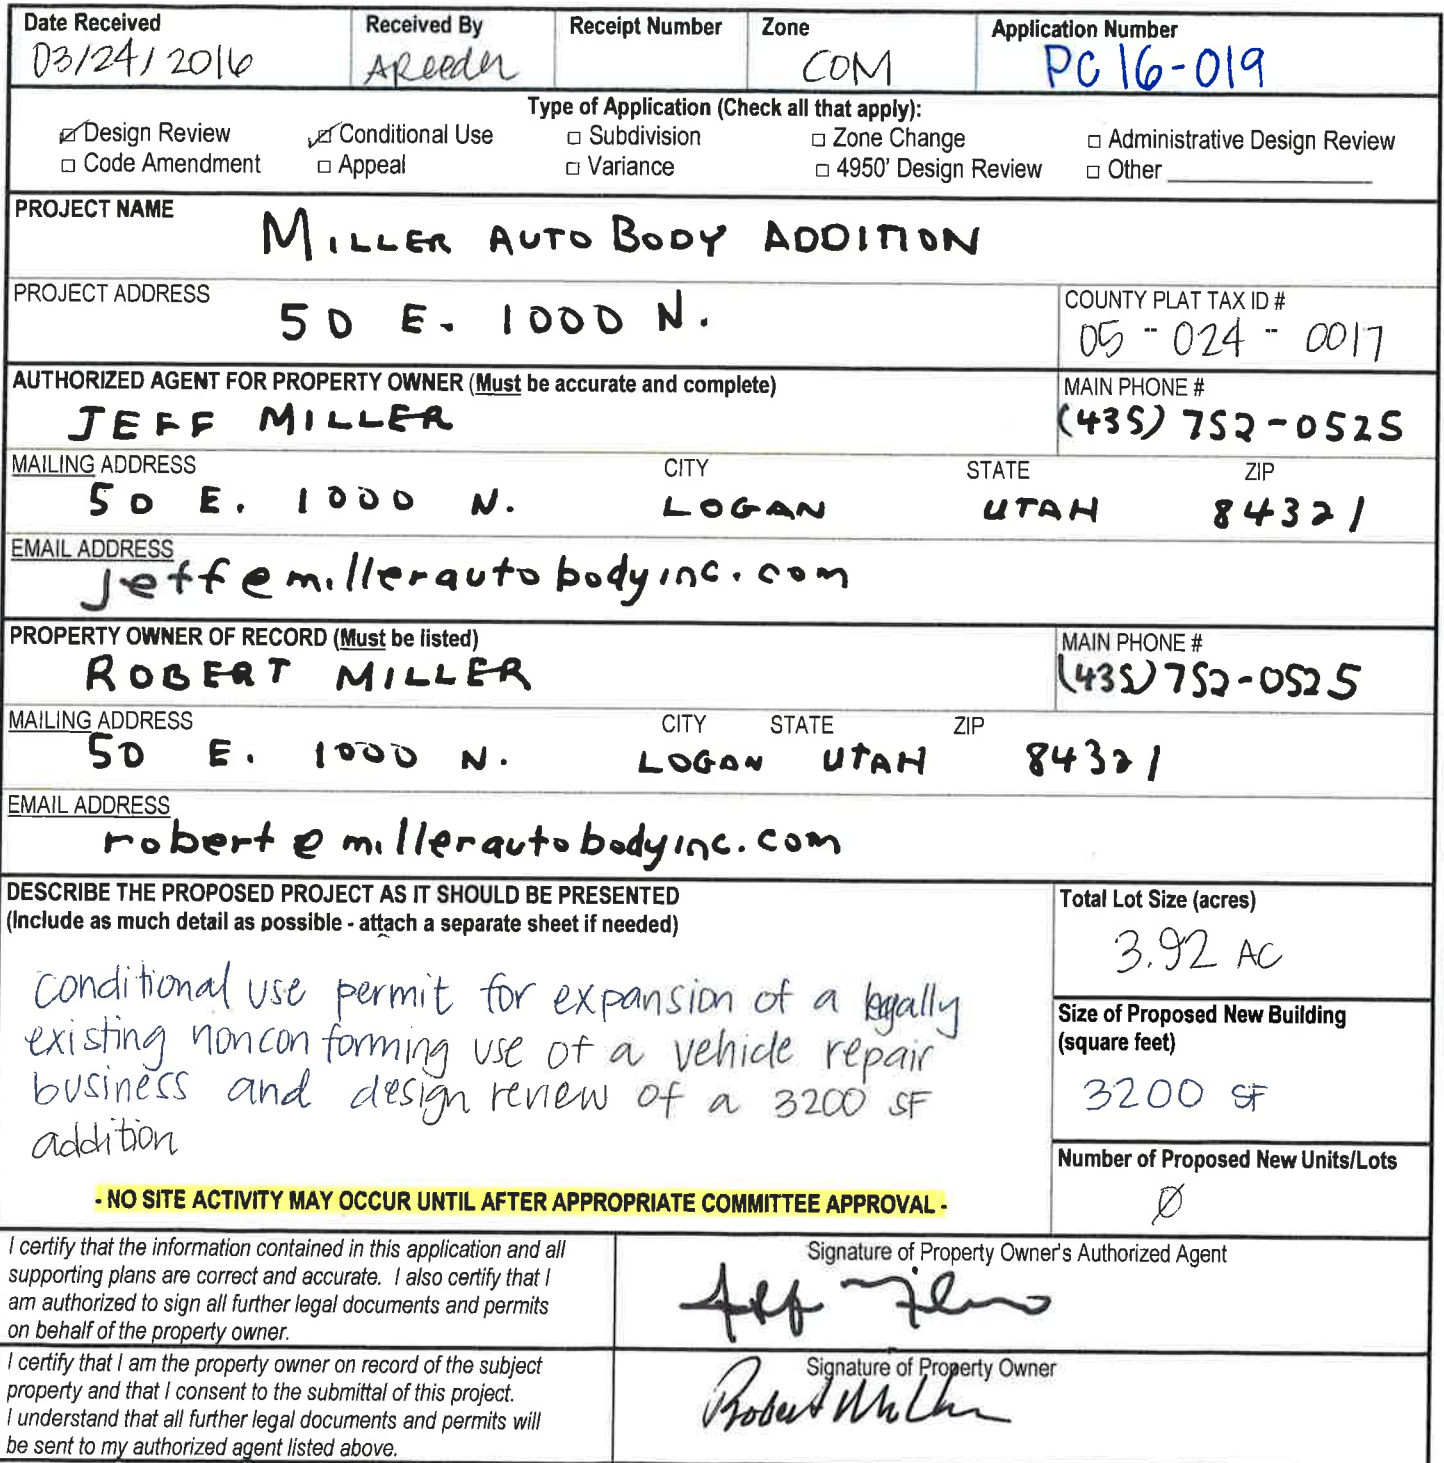 Date Received Received By Receipt Number Zone Application Number
03/24/2016 AReeder COM PC 16-019
Type of Application (Check all that apply):
Design Review Conditional Use □ Subdivision □ Zone Change □ Administrative Design Review
□ Code Amendment □ Appeal □ Variance □ 4950' Design Review □ Other
PROJECT NAME
MILLER AUTO BODY ADDITION
PROJECT ADDRESS COUNTY PLAT TAX ID #
50 E. 1000 N. 05-024-0017
AUTHORIZED AGENT FOR PROPERTY OWNER (Must be accurate and complete) MAIN PHONE #
JEFF MILLER (435) 752-0525
MAILING ADDRESS CITY STATE ZIP
50 E. 1000 N. LOGAN UTAH 84321
EMAIL ADDRESS
jeff@millerautobodyinc.com
PROPERTY OWNER OF RECORD (Must be listed) MAIN PHONE #
ROBERT MILLER (435) 752-0525
MAILING ADDRESS CITY STATE ZIP
50 E. 1000 N. LOGAN UTAH 84321
EMAIL ADDRESS
robert@millerautobodyinc.com
DESCRIBE THE PROPOSED PROJECT AS IT SHOULD BE PRESENTED
(Include as much detail as possible - attach a separate sheet if needed)
conditional use permit for expansion of a legally
existing nonconforming use of a vehicle repair
business and design review of a 3200 SF
addition
- NO SITE ACTIVITY MAY OCCUR UNTIL AFTER APPROPRIATE COMMITTEE APPROVAL -
Total Lot Size (acres)
3.92 AC
Size of Proposed New Building
(square feet)
3200 SF
Number of Proposed New Units/Lots
Ø
I certify that the information contained in this application and all
supporting plans are correct and accurate. I also certify that I
am authorized to sign all further legal documents and permits
on behalf of the property owner.
Signature of Property Owner's Authorized Agent
Jeff Miller
I certify that I am the property owner on record of the subject
property and that I consent to the submittal of this project.
I understand that all further legal documents and permits will
be sent to my authorized agent listed above.
Signature of Property Owner
Robert Miller